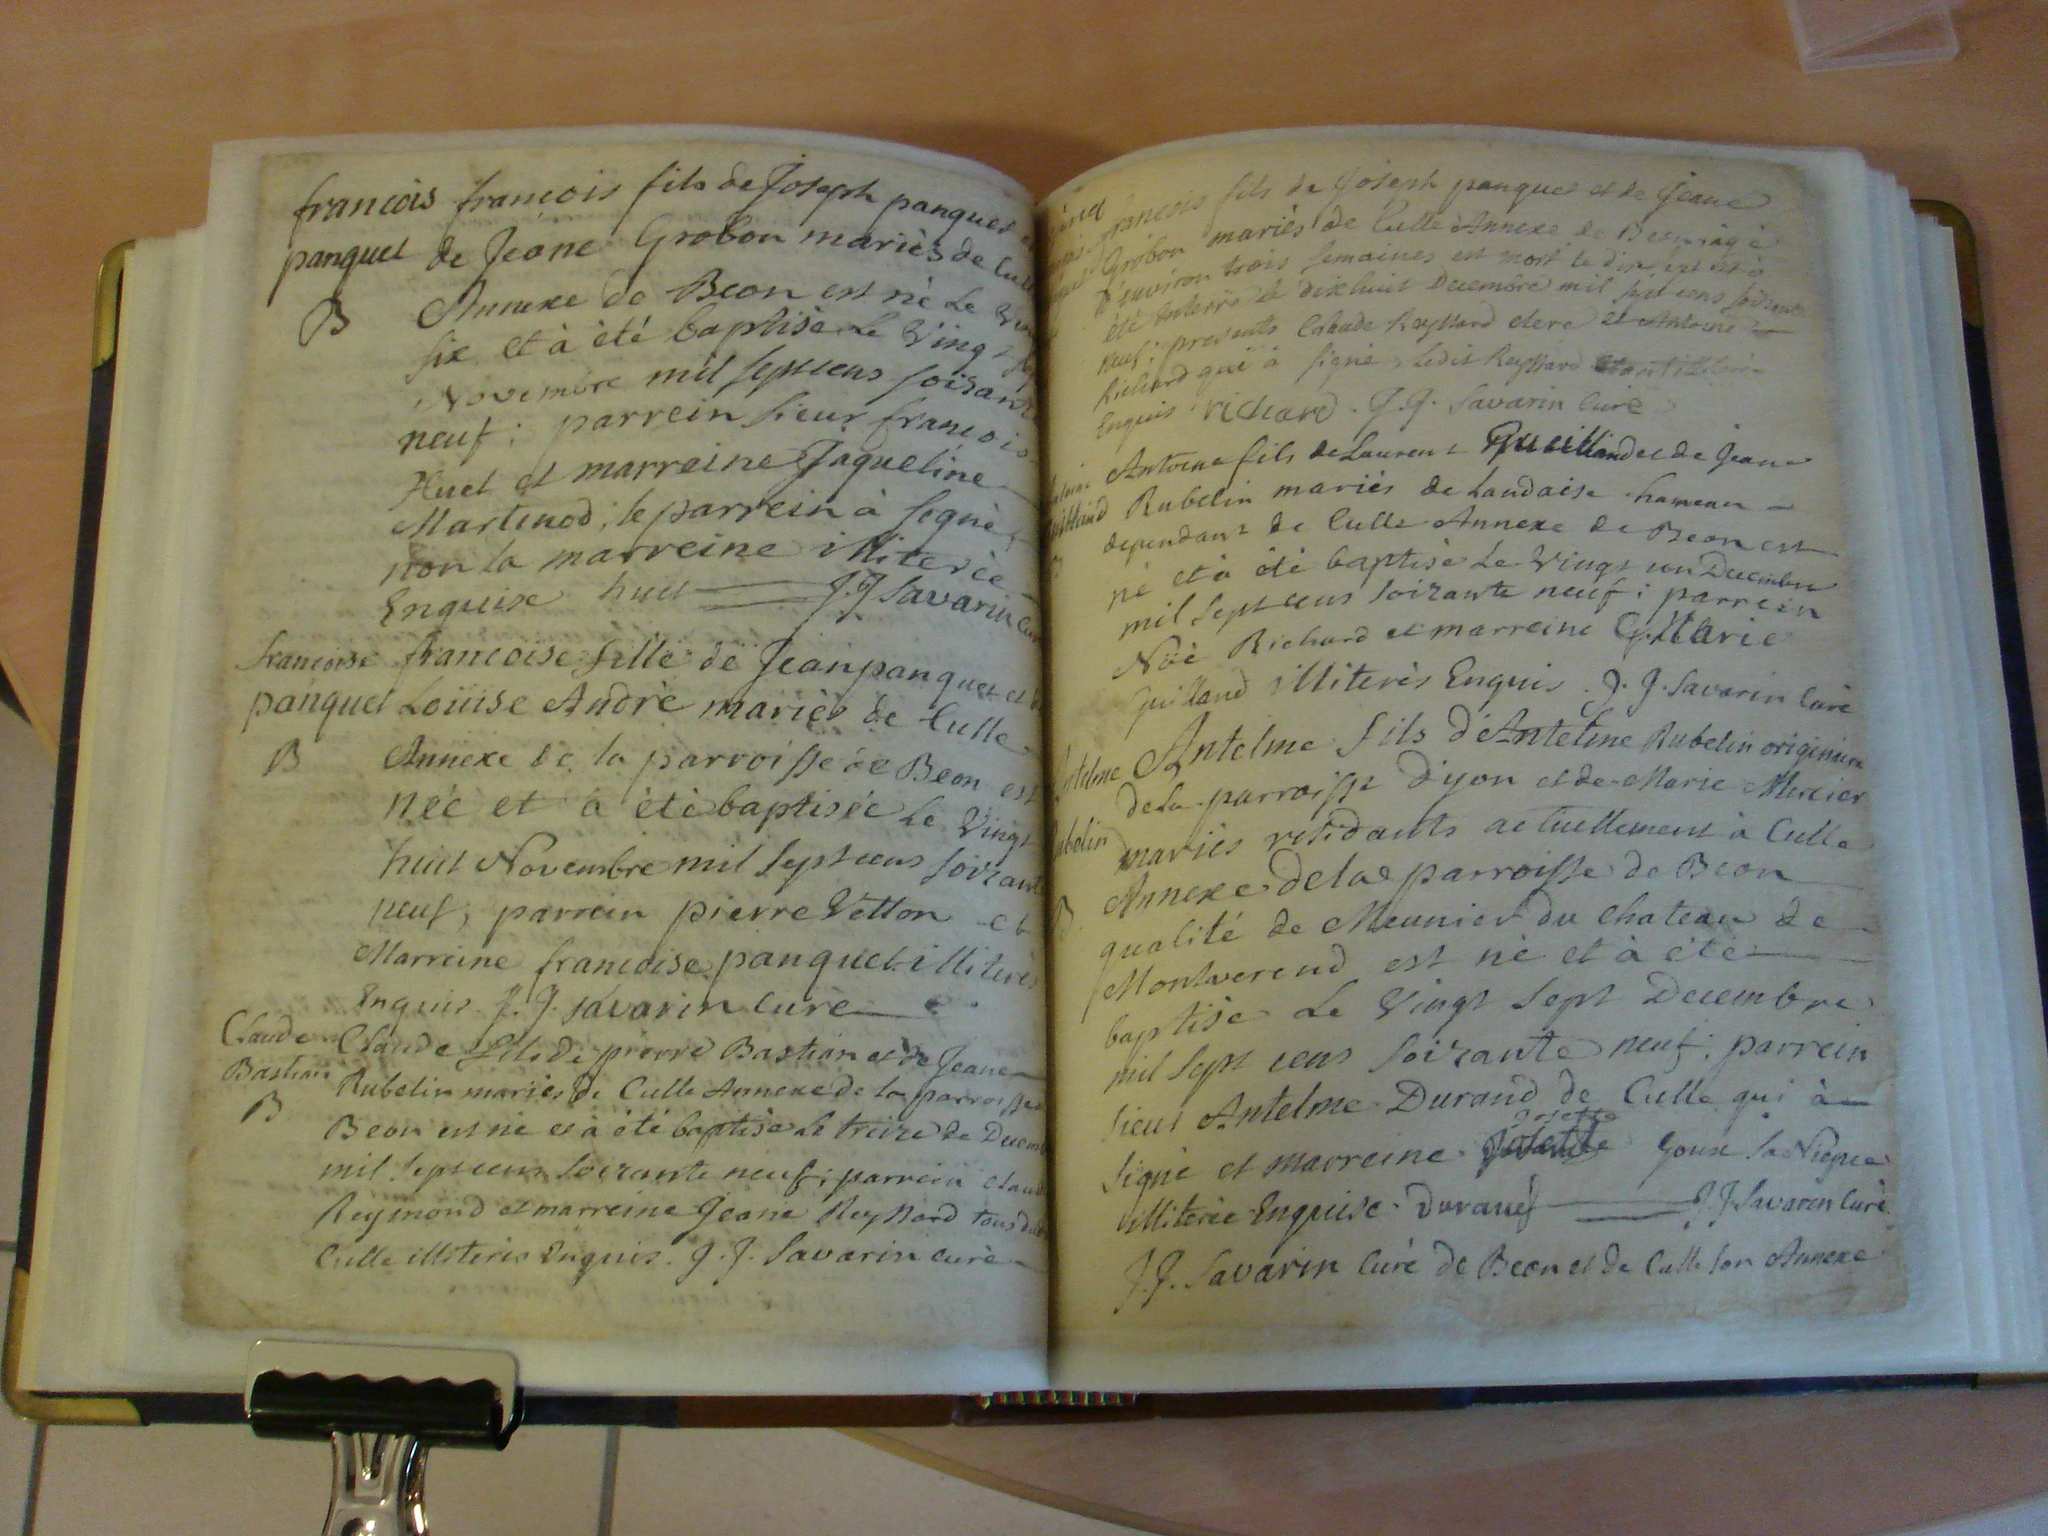 françois françois fils de Joseph panquet
panquet de Jeane Grobon mariès de Cull
B Annexe de Beon est nè Le
six et à été baptisè Le Vingt
Novembre mil septcens soixant
neuf; parrein sieur françois
Huet et marreine Jaqueline
Martinod; le parrein à signè,
non la marreine illiterèe
Enquise huet J. J. Savarin Cur
françoise françoise fille de Jean panquet et
panquet Loüise Andrè mariès de Culle
B Annexe de la parroisse de Beon est
nèe et a ètè baptisèe Le Vingt
huit Novembre mil septcens soixant
neuf, parrein pierre Vetton et
Marreine françoise panquet illiterès
Enquis J. J. Savarin Curè
Claude Claude fils de pierre Bastian et de Jeane
Bastian Rubelin mariès de Culle Annexe de la parroisse
B Beon est nè et à été baptisè Le treize de Decemb
mil septcens soixante neuf; parrein Claud
Reymond et marreine Jeane Reyssard tous de
Culle illiterès Enquis. J. J. Savarin curè
françois fils de Joseph panquet et de Jeane
Grobon mariès de Culle Annexe de Beon agè
d'environ trois semaines est mort le dix sept et à
été enterrè le dixhuit Decembre mil sept cens soixante
neuf; presents Claude Reyssard clerc et Antoine
Richard qui à signè, Ledit Reyssard
Enquis richard. J. J. Savarin Curè
Antoine fils de Laurent Guilland et de Jeane
Guilland Rubelin mariès de Landaise hameau
dependant de Culle Annexe de Beon est
nè et à été baptisè Le Vingt un Decembre
mil sept cens soixante neuf; parrein
Noè Richard et marreine Marie
Guilland illiterès Enquis. J. J. Savarin Curè
Antelme Antelme fils d'Antelme Rubelin originaire
de La parroisse d'yon et de Marie Mercier
Rubelin mariès residants actuellement à Culle
B Annexe de la parroisse de Beon
qualité de Meunier du Chateau de
Montverend est nè et à été
baptisè Le Vingt Sept Decembre
mil Sept cens soixante neuf; parrein
sieur Antelme Durand de Culle qui à
josette
signè et marreine Goux sa Nièpce
illiterèe Enquise. Durand J. J. Savarin Curè
J. J. Savarin Curè de Beon et de Culle son Annexe